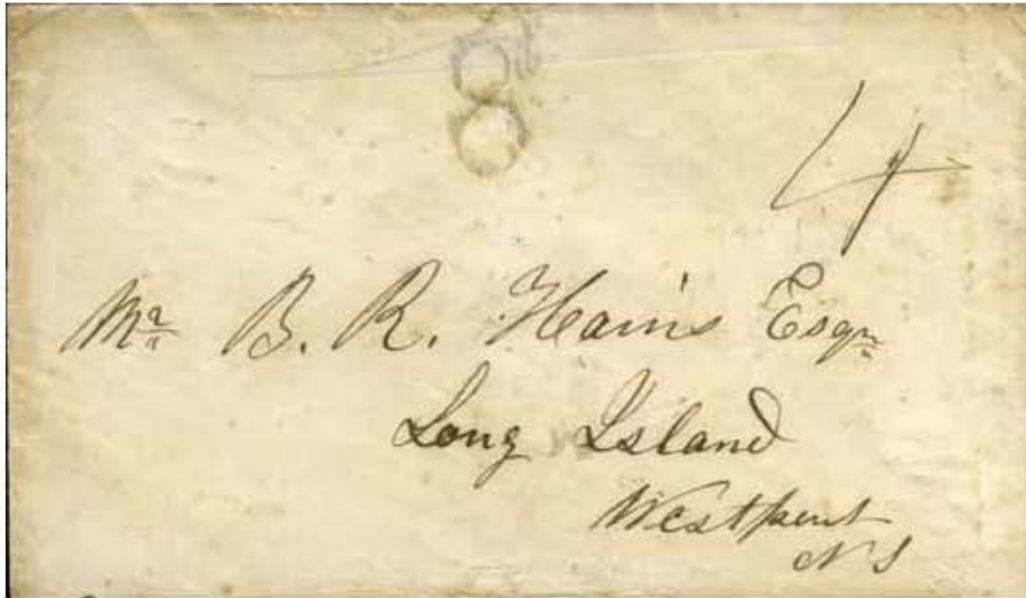 4
Mr B. R. Hains Esqr
Long Island
Westport
N S